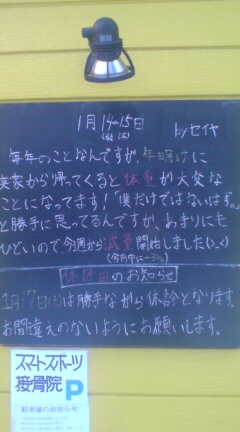 1月14・15日
(水)(木)
byセイヤ
毎年のことなんですが、年明けに
実家から帰ってくると体重が大変な
ことになってます!「僕だけではないはず。」
と勝手に思ってるんですが、あまりにも
ひどいので今週から減量開始しました(>_<)
休診日のお知らせ
1月17日(土)は勝手ながら休診となります。
お間違えのないようにお願いします。
スマートスポーツ
接骨院 P
駐車場のお知らせ